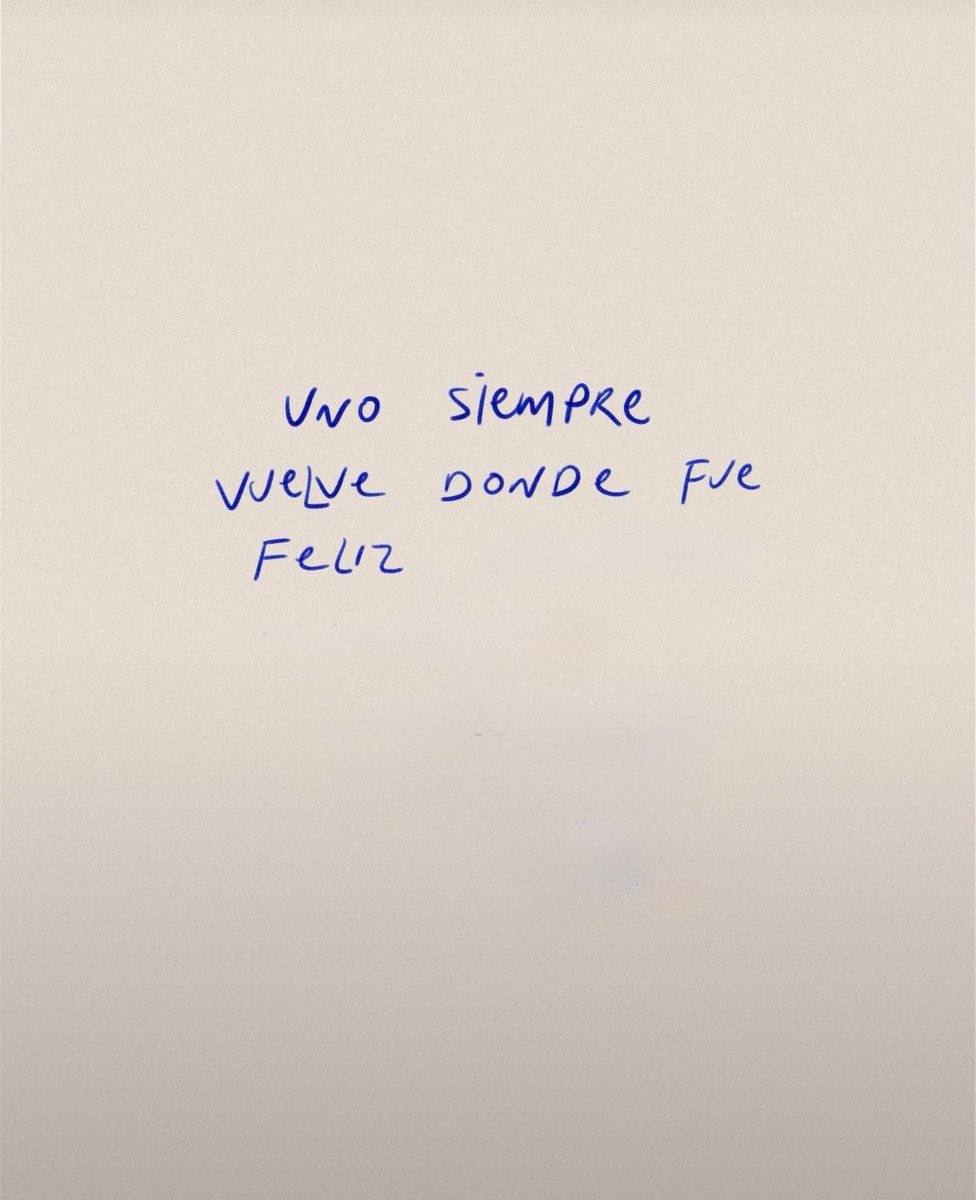 UNO SiEMPRe
VUeLVe DONDe FUe
FeLIZ